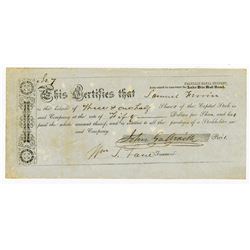 No 7
FRANKLIN CANAL COMPANY,
Lake Erie Rail Road.
This Certifies that Samuel
is the holder of Three & one half Shares of the Capital Stock in
said Company at the rate of Fifty Dollars for Share, and has
paid the whole amount thereof, and is entitled to all the privileges of a Stockholder in
said Company.
John Galbraith Pres't.
Wm. S. Lane Treasurer